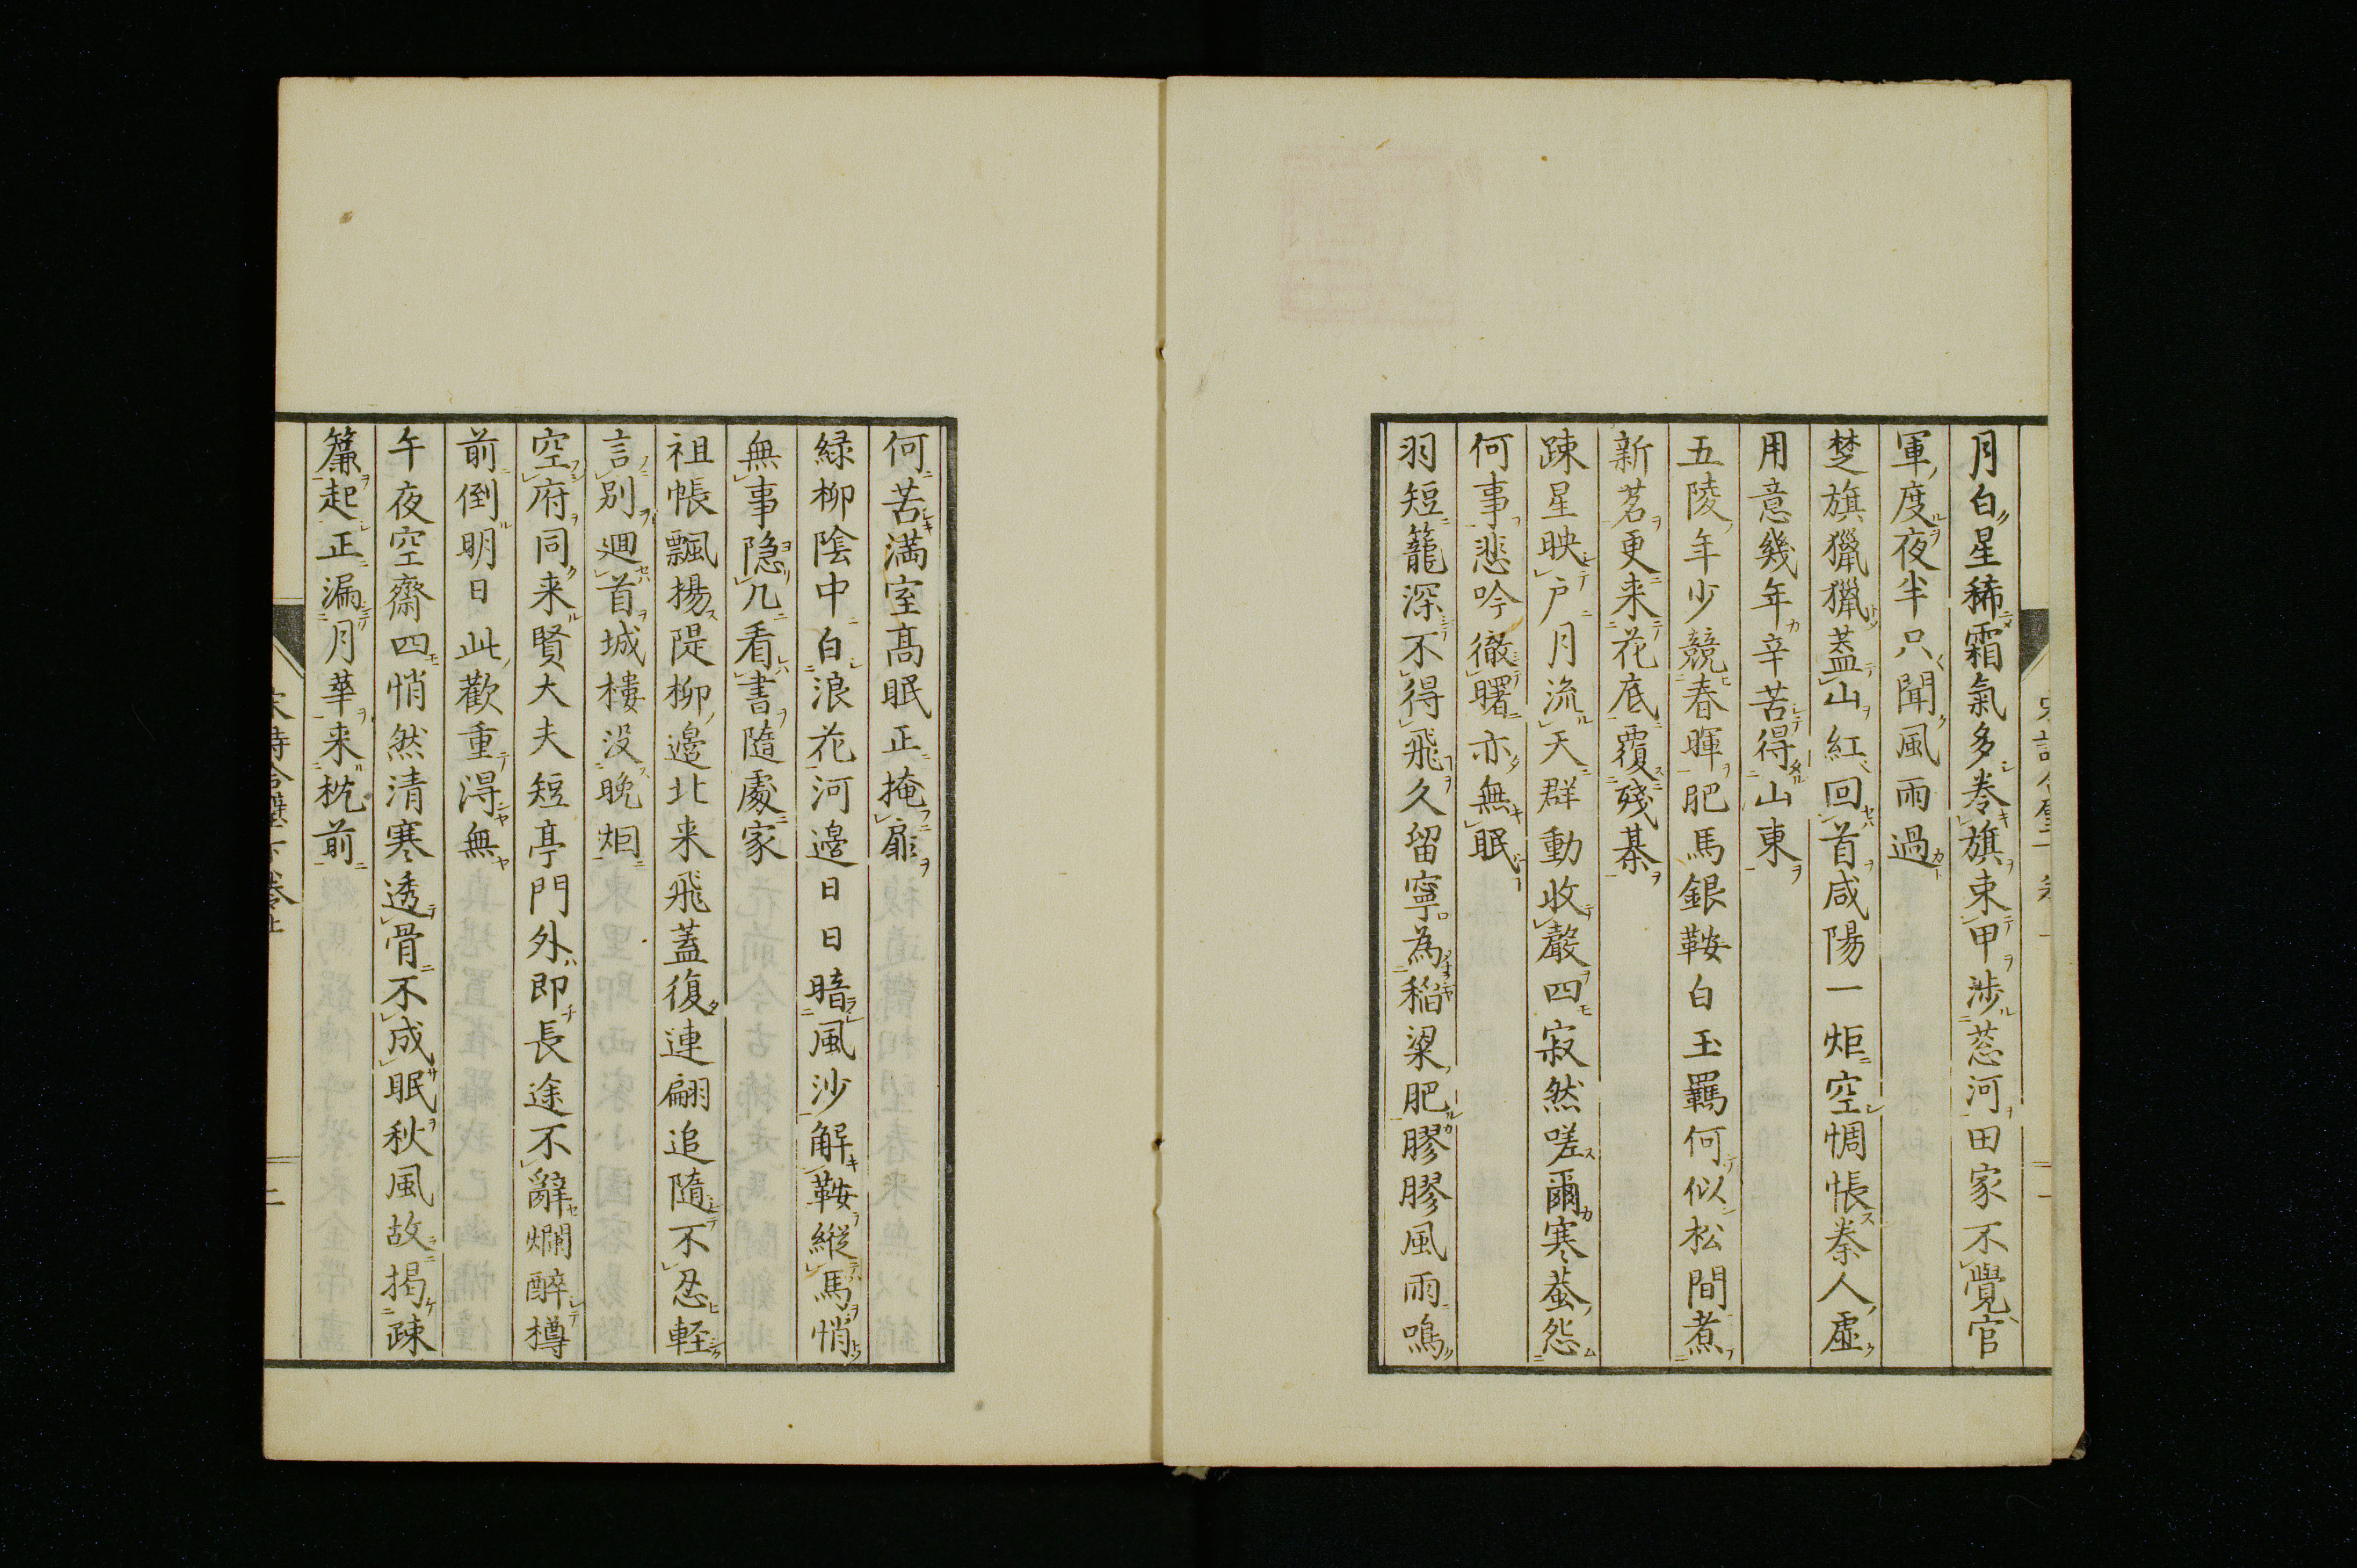 月白星稀霜氣多巻旗束甲渉葱河田家不覺官
軍度夜半只聞風雨過
楚旗獵獵蓋山紅回首咸陽一炬空惆悵秦人虚
用意幾年辛苦得山東
五陵年少競春暉肥馬銀鞍白玉羈何似松間煮
新茗更来花底覆殘棊
踈星映戸月流天群動收聲四寂然嗟爾寒蛩怨
何事悲吟徹曙亦無眠
羽短籠深不得飛久留寧為稲粱肥膠膠風雨鳴
何苦満室髙眠正掩扉
緑柳陰中白浪花河邉日日暗風沙解鞍縦馬悄
無事隠几看書隨處家
祖帳飄揚隄柳邉北来飛蓋復連翩追隨不忍輕
言別廻首城樓没晩烟
空府同来賢大夫短亭門外即長途不辭爛醉樽
前倒明日此歡重淂無
午夜空齋四悄然清寒透骨不成眠秋風故揭踈
簾起正漏月華来枕前